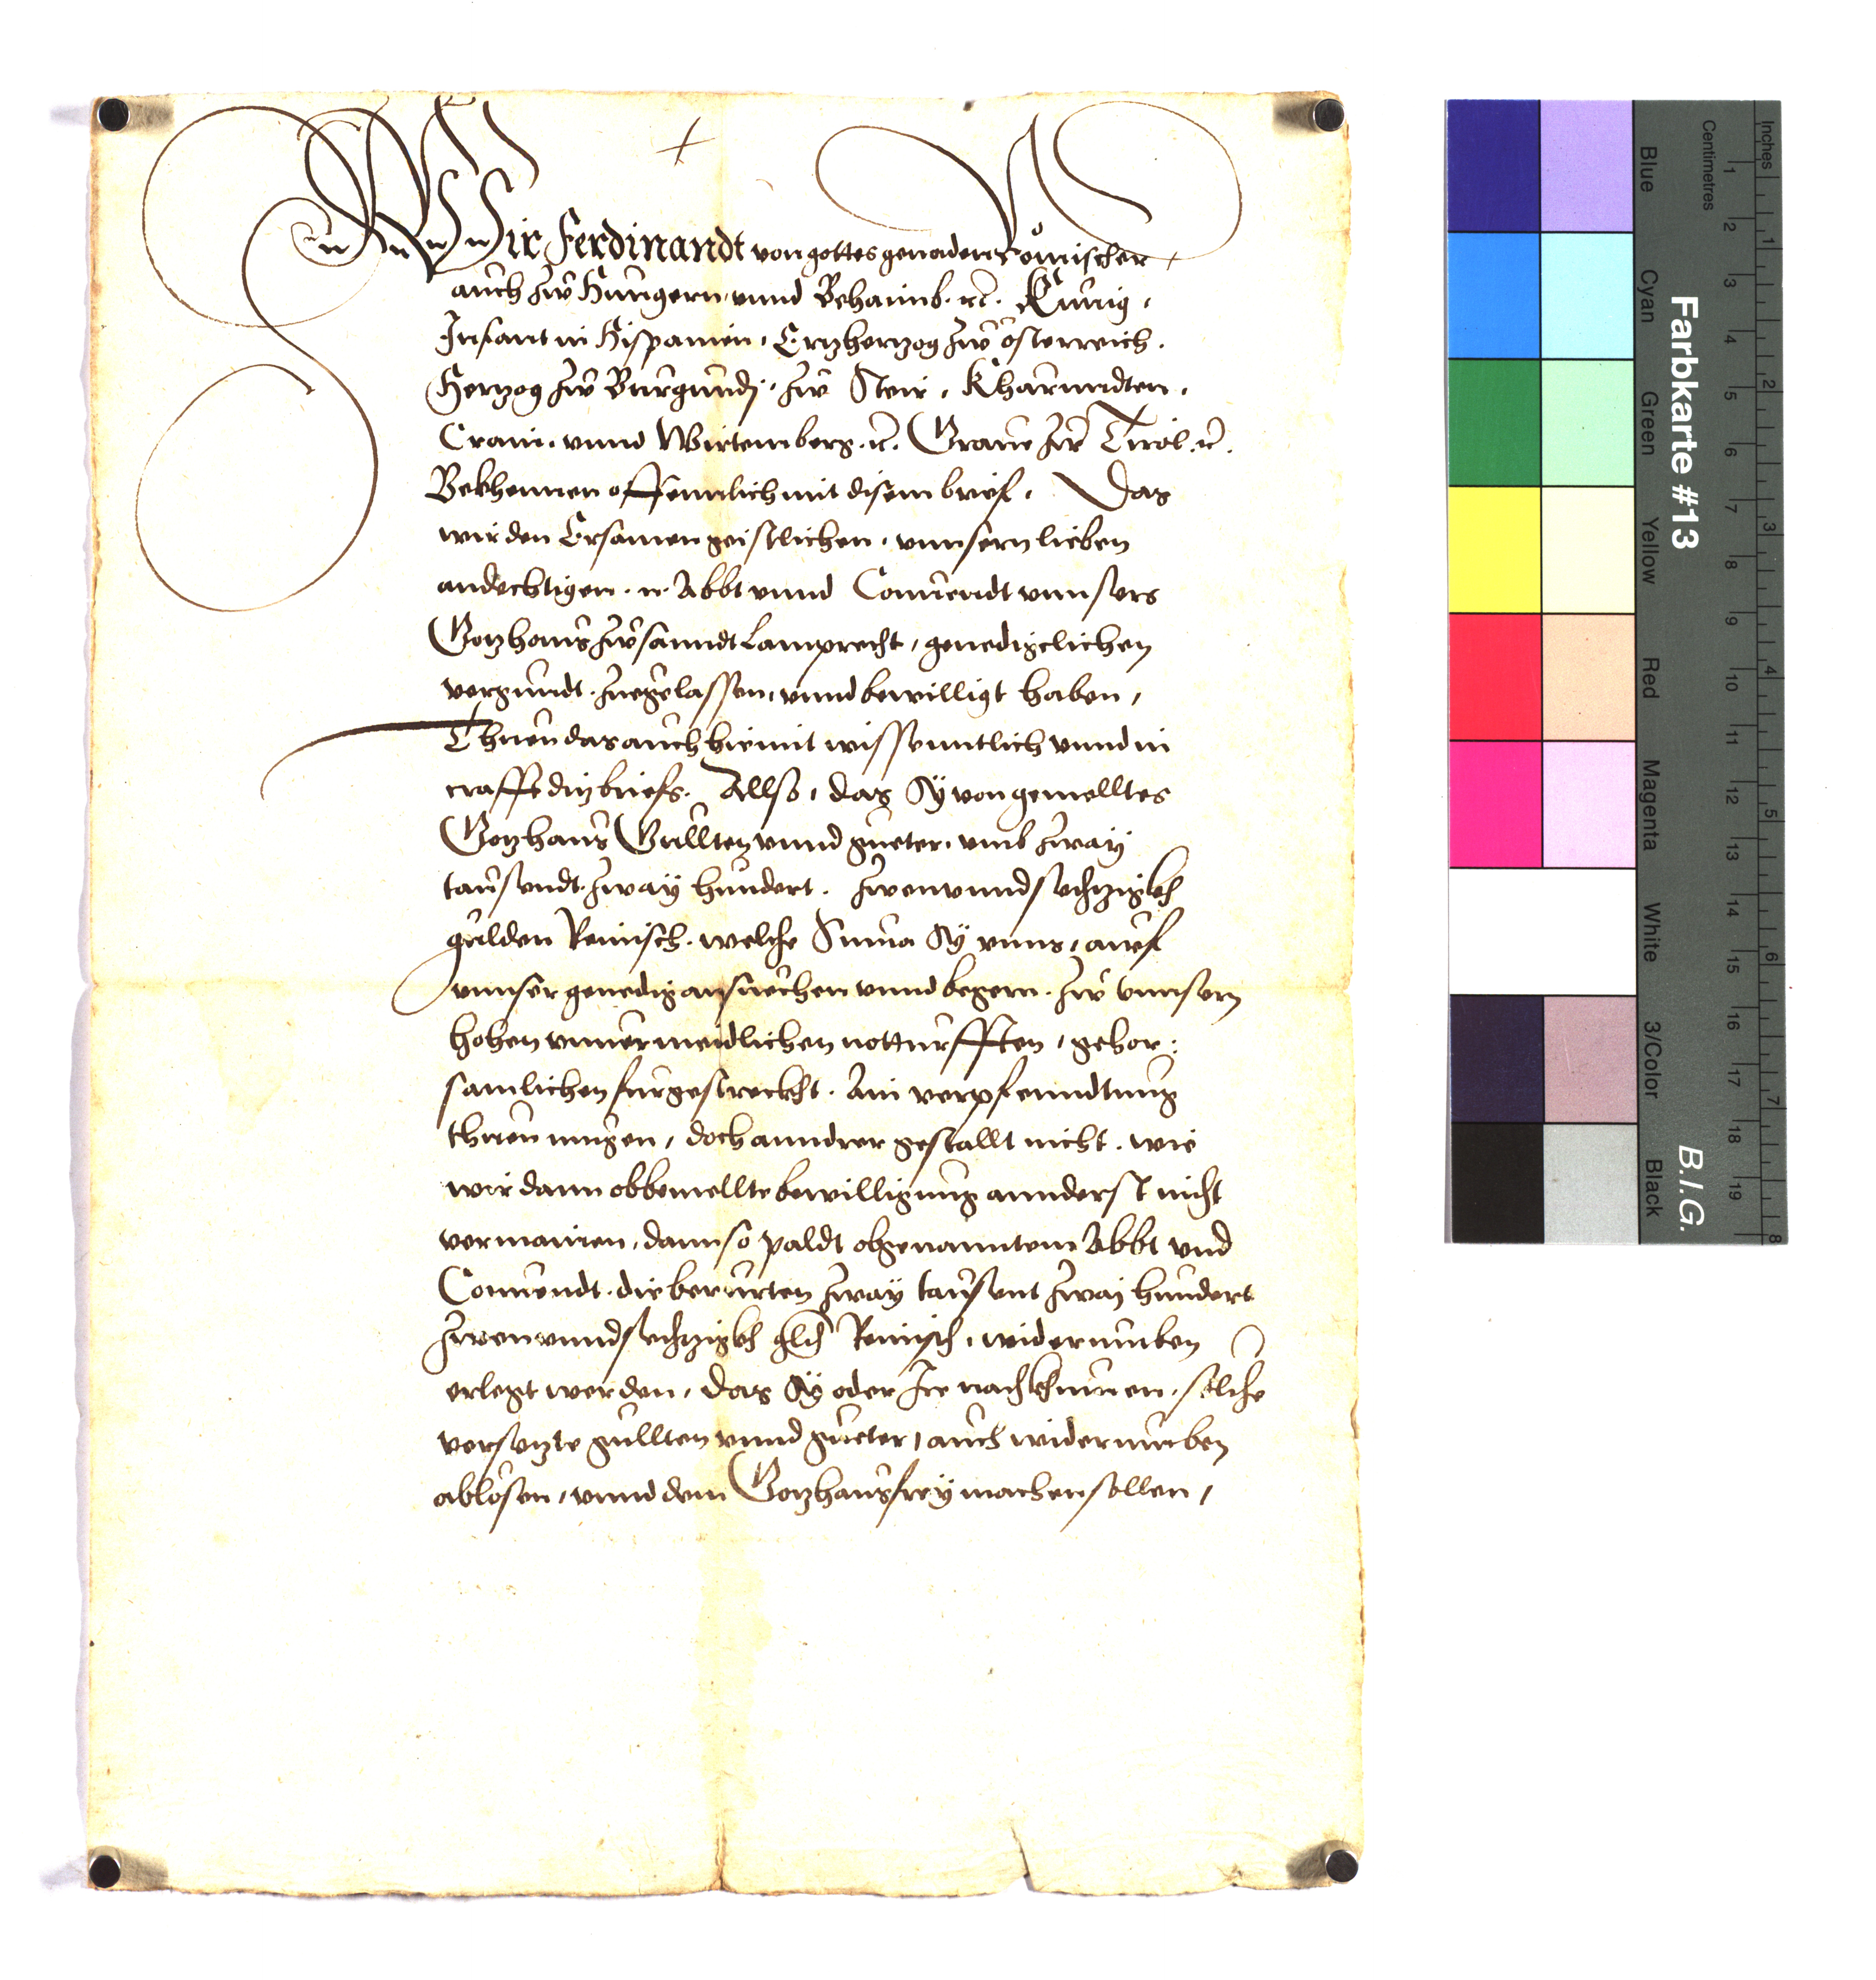 Wir Ferdinandt von gottes genaden Römischer
auch zw Hungern, vnnd Behaimb. rc. Kunig,
Infant in Hispanien, Ertzhertzog zw Osterreich.
Hertzog zw Burgundj, zw Steir, Kharnndten,
Crain, vnnd Wirtemberg. rc. Graue zw Tirol. rc.
Bekhennen offennlich mit disem brief, Das
wir den Ersamen geistlichen, vnnsern lieben
andechtigen. N. Abbt vnnd Conuendt vnnsers
Gotzhaus zw sanndt Lamprecht, genedigclichen
vergundt. zuegelassen, vnnd bewilligt haben,
Thuen das auch hiemit wissenntlich vnnd in
crafft ditz briefs. Allso, das Sy von gemelltes
Gotzhaus Gullten vnnd gueter, vmb zway
tausendt. zway hundert. zwenvnndsechtzigkh
gulden Reinisch. welche Suma Sy vnns, auf
vnnser genedig ansuechen vnnd begern. zw vnnsern
hohen vnuermeidlichen notturfften, gehor:
samlichen furgestreckht. Ain verpfenndtung
thuen mugen, doch annderer gestallt nicht. wie
wir dann obbemellte bewilligung annderst nicht
vermainen, dann so paldt obgenanntem Abbt vnd
Conuendt. die berurten zway tausent zwaj hundert
zwenvnndsechtzigkh gldn Reinisch, widerumben
erlegt werden, das Sy oder Ire nachkhumen, solche
versetzte gullten vnnd gueter, auch widerumben
ablösen, vnnd dem Gotzhaus frey machen sollen,
Farbkarte #13
B.I.G.
Centimetres
Inches
Blue
Cyan
Green
Yellow
Red
Magenta
White
3/Color
Black
1 2 3 4 5 6 7 8 9 10 11 12 13 14 15 16 17 18 19
1 2 3 4 5 6 7 8